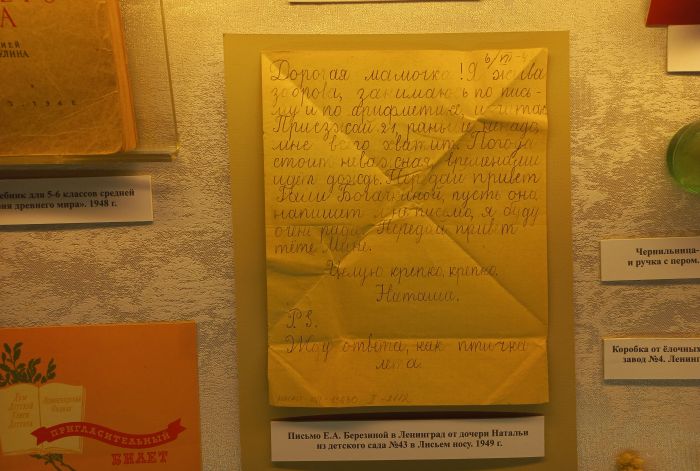 А
ЦИЕЙ
УЛИНА
ебник для 5-6 классов средней
рия древнего мира». 1948 г.
Дорогая мамочка! Я жива
здорова, занимаюсь по пись-
му и по арифметике, и
Приезжай 21, раньше не надо,
мне всего хватит. Погода
стоит неважная, временами
идет дождь. Передай привет
Нили Богачкиной, пусть она
напишет мне письмо, я буду
очень рада. Передай привет
тёте Мане.
Целую крепко, крепко.
Наташа.
P.S.
Жду ответа, как птичка
лета.
Письмо Е.А. Березиной в Ленинград от дочери Натальи
из детского сада №43 в Лисьем носу. 1949 г.
Чернильница-
и ручка с пером.
Коробка от ёлочных
завод №4. Ленинг
Дом
Детской
Книги
Детгиза
Ленинградский
Филиал
ПРИГЛАСИТЕЛЬНЫЙ
БИЛЕТ